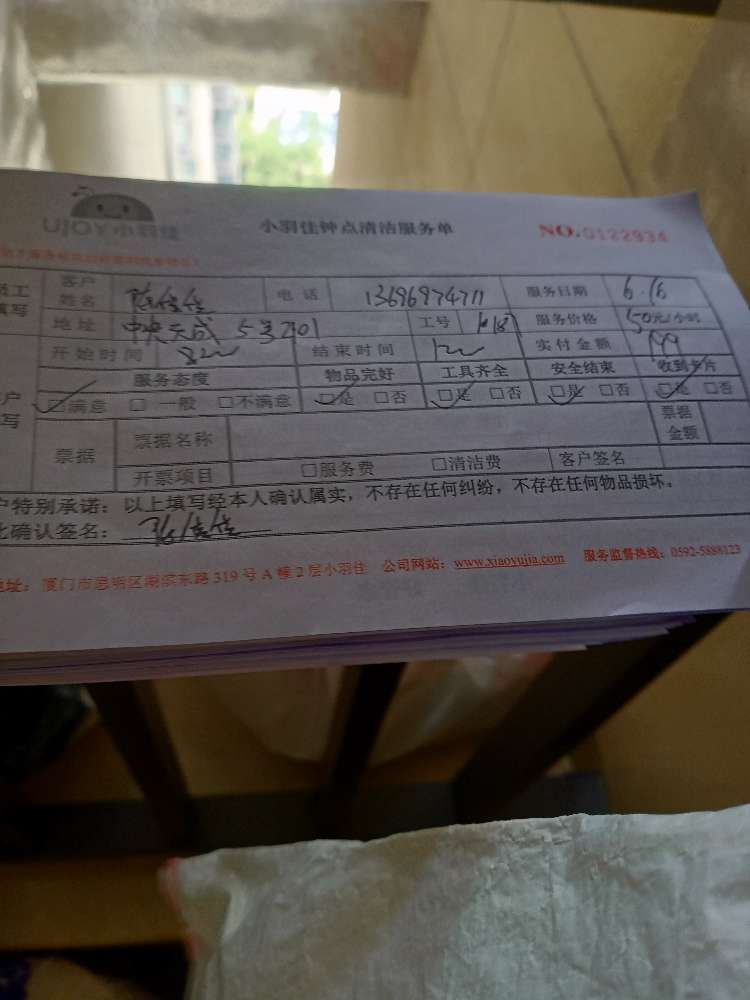 UJOY小羽佳
小羽佳钟点清洁服务单
NO.0122934
员工填写
客户姓名
佳佳 电话 13696974711 服务日期 6.16
地址 中央天成 5号 工号 服务价格 50元/小时
开始时间 结束时间 实付金额 199
服务态度 物品完好 工具齐全 安全结束 收到卡片
☑满意 □一般 □不满意 ☑是 □否 ☑是 □否 ☑是 □否 ☑是 □否
票据 票据名称 票据金额
开票项目 □服务费 □清洁费 客户签名
户特别承诺：以上填写经本人确认属实，不存在任何纠纷，不存在任何物品损坏。
此确认签名： 佳佳
地址：厦门市思明区湖滨东路319号A幢2层小羽佳 公司网站：www.xiaoyujia.com 服务监督热线：0592-5888123